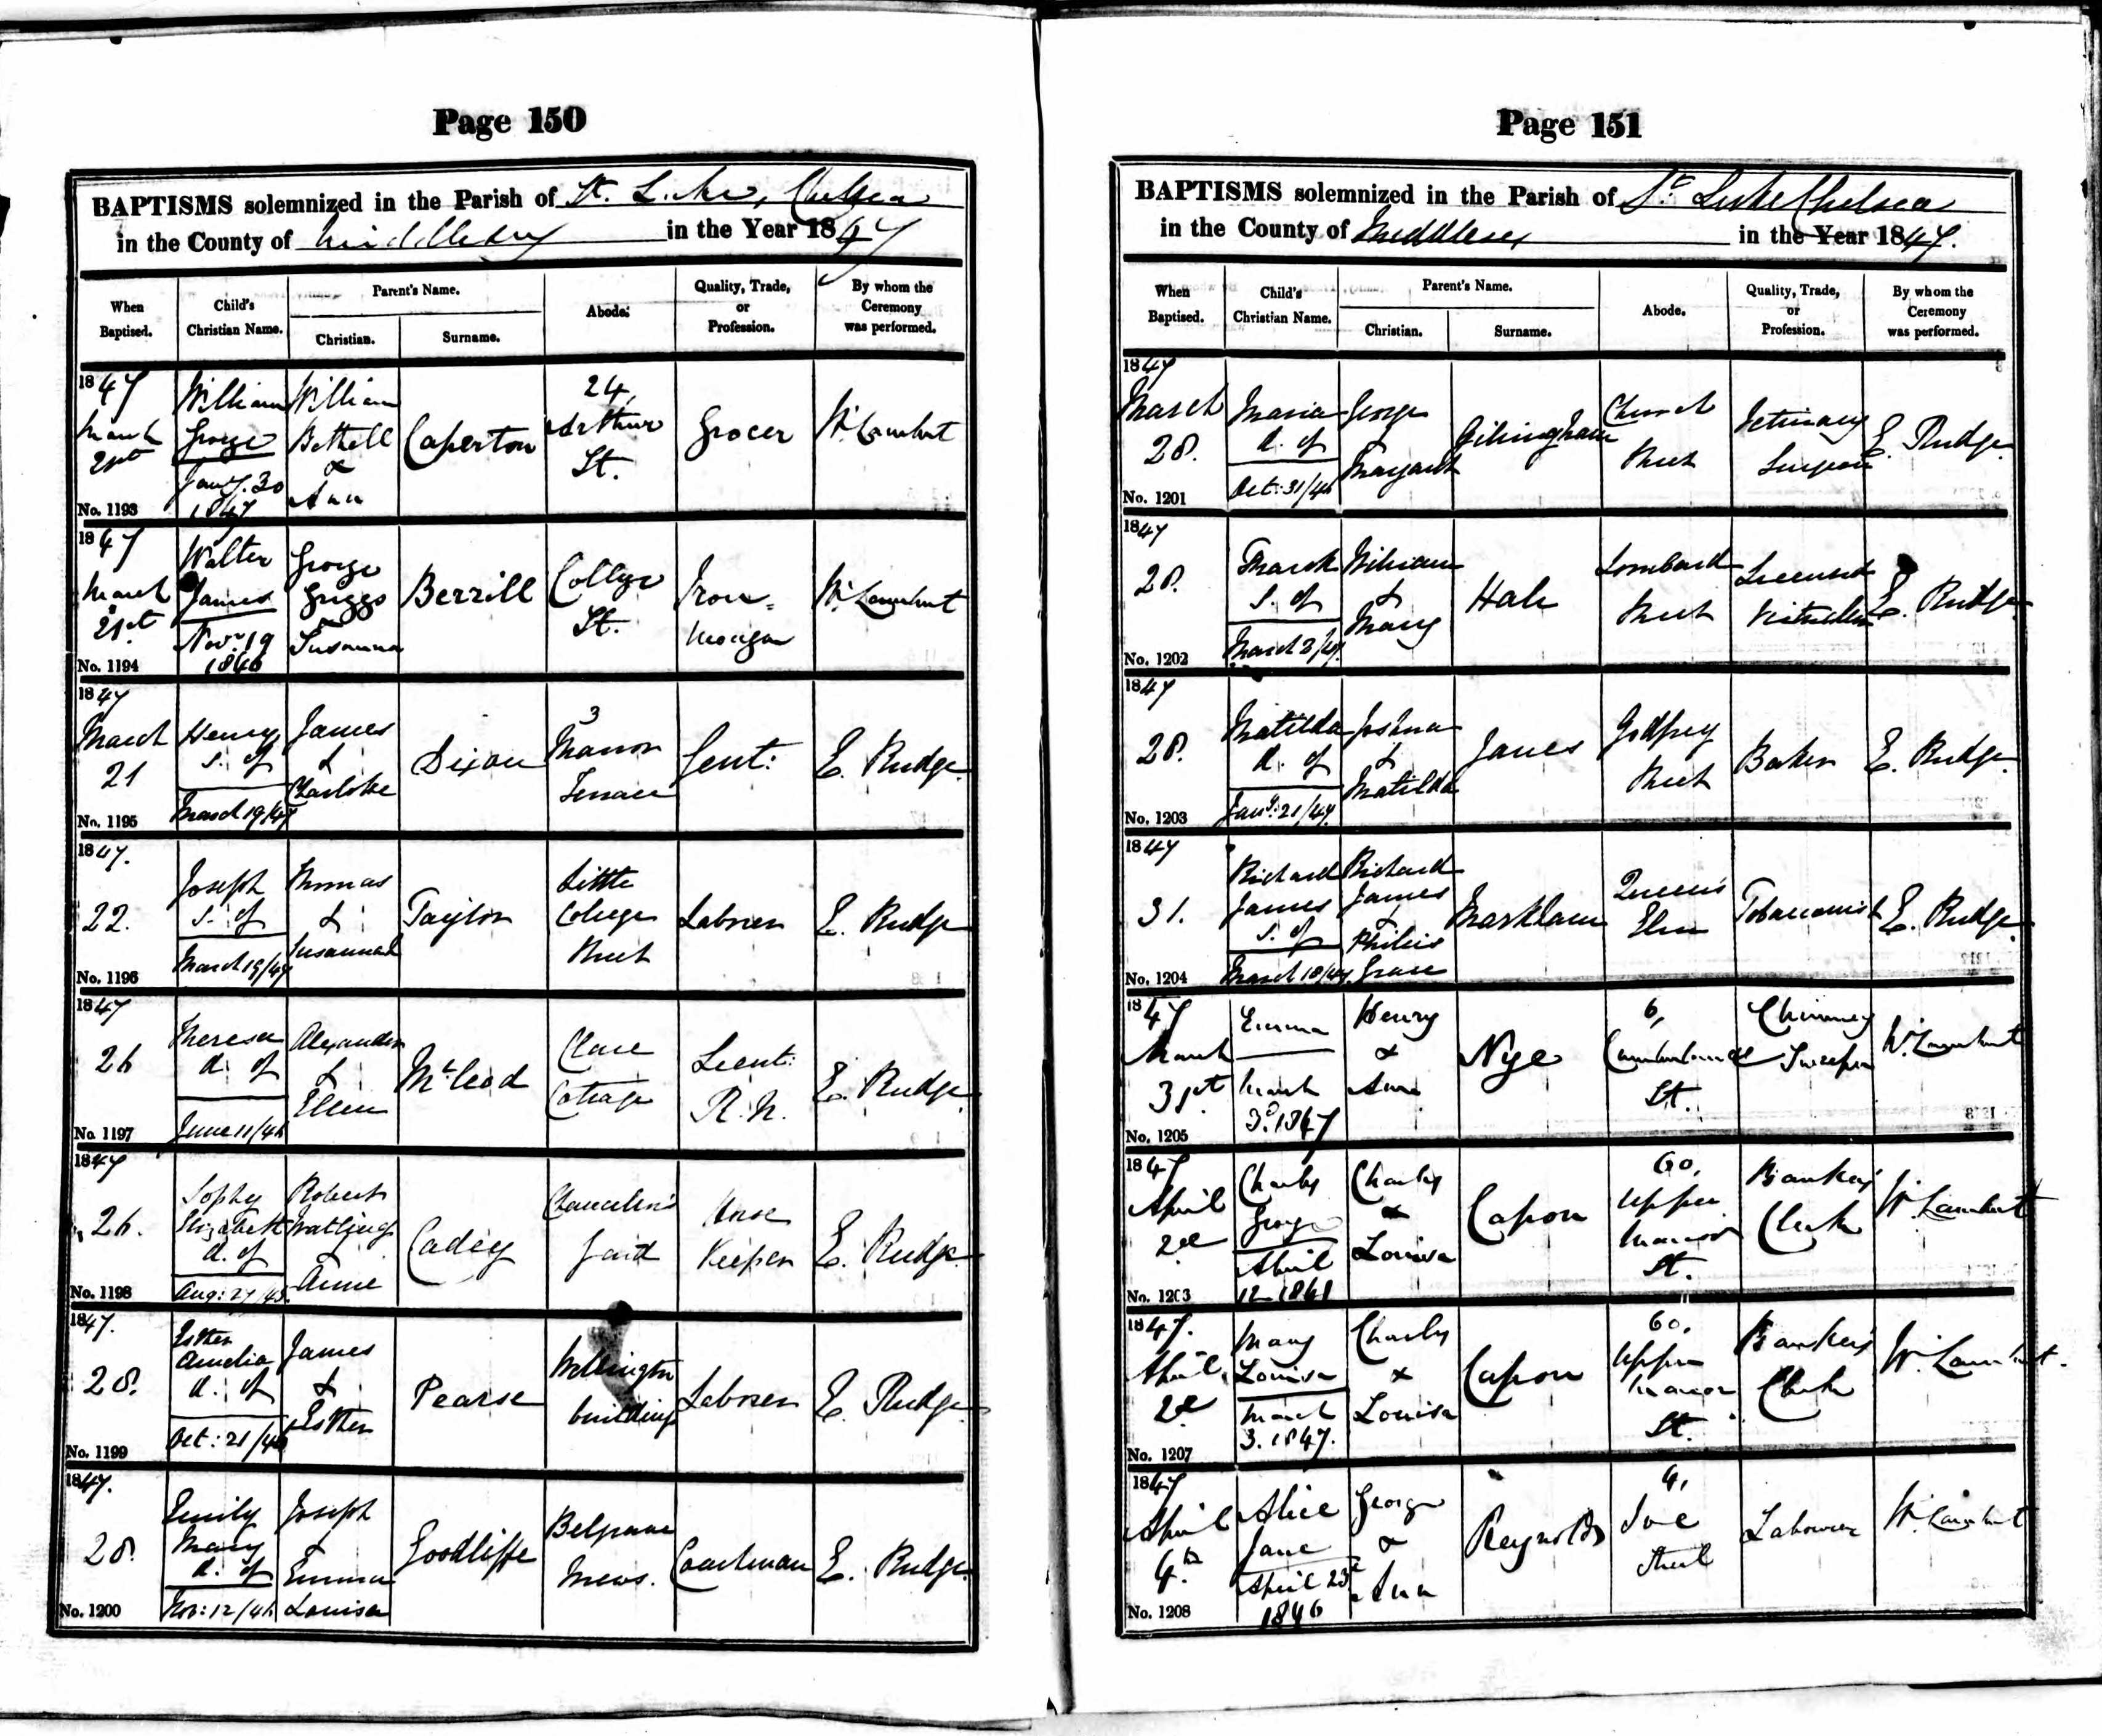 Page 150
BAPTISMS solemnized in the Parish of St. Luke, Chelsea
in the County of Middlesex in the Year 1847
When Baptised.
Child's Christian Name.
Parent's Name.
Christian.
Surname.
Abode.
Quality, Trade, or Profession.
By whom the Ceremony was performed.
1847
March
21st
No. 1193
William
George
Jany. 30
1847
William
Bethell
&
Ann
Caperton
24,
Arthur
St.
Grocer
W. Lambert
1847
March
21st
No. 1194
Walter
James
Novr. 19
1846
George
Griggs
Susanna
Berrill
College
St.
Iron=
monger
W. Lambert
1847
March
21
No. 1195
Henry
s. of
March 19/47
James
&
Charlotte
Dixon
3
Manor
Terrace
Gent:
E. Rudge
1847.
22.
No. 1196
Joseph
s. of
March 19/47
Thomas
&
Susannah
Taylor
Little
College
Street
Laborer
E. Rudge
1847
26
No. 1197
Theresa
d. of
June 11/46
Alexander
&
Ellen
McLeod
Clare
Cottage
Lieut:
R.N.
E. Rudge
1847
26.
No. 1198
Sophy
Elizabeth
d. of
Aug: 27/45.
Robert
Watling
&
Annie
Cadey
Chancelor's
Yard
Horse
Keeper
E. Rudge
1847.
28.
No. 1199
Esther
Amelia
d. of
Oct: 21/46
James
&
Esther
Pearse
Wellington
buildings
Laborer
E. Rudge
1847.
28.
No. 1200
Emily
Mary
d. of
Nov: 12/46
Joseph
Emma
Louisa
Goodliffe
Belgrave
Mews.
Coachman
E. Rudge
Page 151
BAPTISMS solemnized in the Parish of St. Luke Chelsea
in the County of Middlesex in the Year 1847.
When Baptised.
Child's Christian Name.
Parent's Name.
Christian.
Surname.
Abode.
Quality, Trade, or Profession.
By whom the Ceremony was performed.
1847
March
28.
No. 1201
Maria
d. of
Oct: 31/46
George
&
Margaret
Gillingham
Church
Street
Vetinary
Surgeon
E. Rudge
1847
28.
No. 1202
Frank
s. of
March 2/47.
William
&
Mary
Hale
Lombard
Street
Licensed
Victualler
E. Rudge
1847
28.
No. 1203
Matilda
d. of
Jany: 21/47.
Joshua
&
Matilda
Janes
Godfrey
Street
Baker
E. Rudge
1847
31.
No. 1204
Richard
James
s. of
March 10/47.
Richard
James
&
Phillis
Grace
Markham
Queen's
Elm
Tobacconist
E. Rudge
1847
March
31st
No. 1205
Emma
March
3d. 1847
Henry
&
Ann
Nye
6,
Cumberland
St.
Chimney
Sweeper
W. Lambert
1847
April
2d
No. 1203
Charles
George
April
12
Charles
&
Louisa
Capon
60,
Upper
Manor
St.
Banker's
Clerk
W. Lambert
1847.
April
2d
No. 1207
Mary
Louisa
March
3. 1847.
Charles
&
Louisa
Capon
60,
Upper
Manor
St.
Banker's
Clerk
W. Lambert.
1847
April
4th
No. 1208
Alice
Jane
April 23d
1846
George
&
Ann
Reynolds
4,
Street
Labourer
W. Lambert